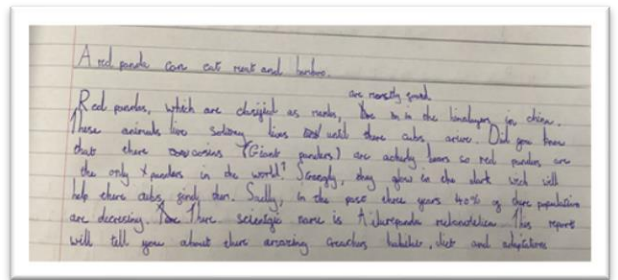 A red panda can eat meat and bamboo.
are normally found
Red pandas, which are classified as mambs, in the himalayas in china.
These animals live solitary lives until there cubs arive. Did you know
that there cousins (Giant pandas) are actualy bears so red pandas are
the only pandas in the world? Strangely, they glow in the dark wich will
help there cubs find them. Sadly, in the past three years 40% of there population
are decreasing. There scientific name is This report
will tell you about there amazing creachers habitat, diet and adaptations